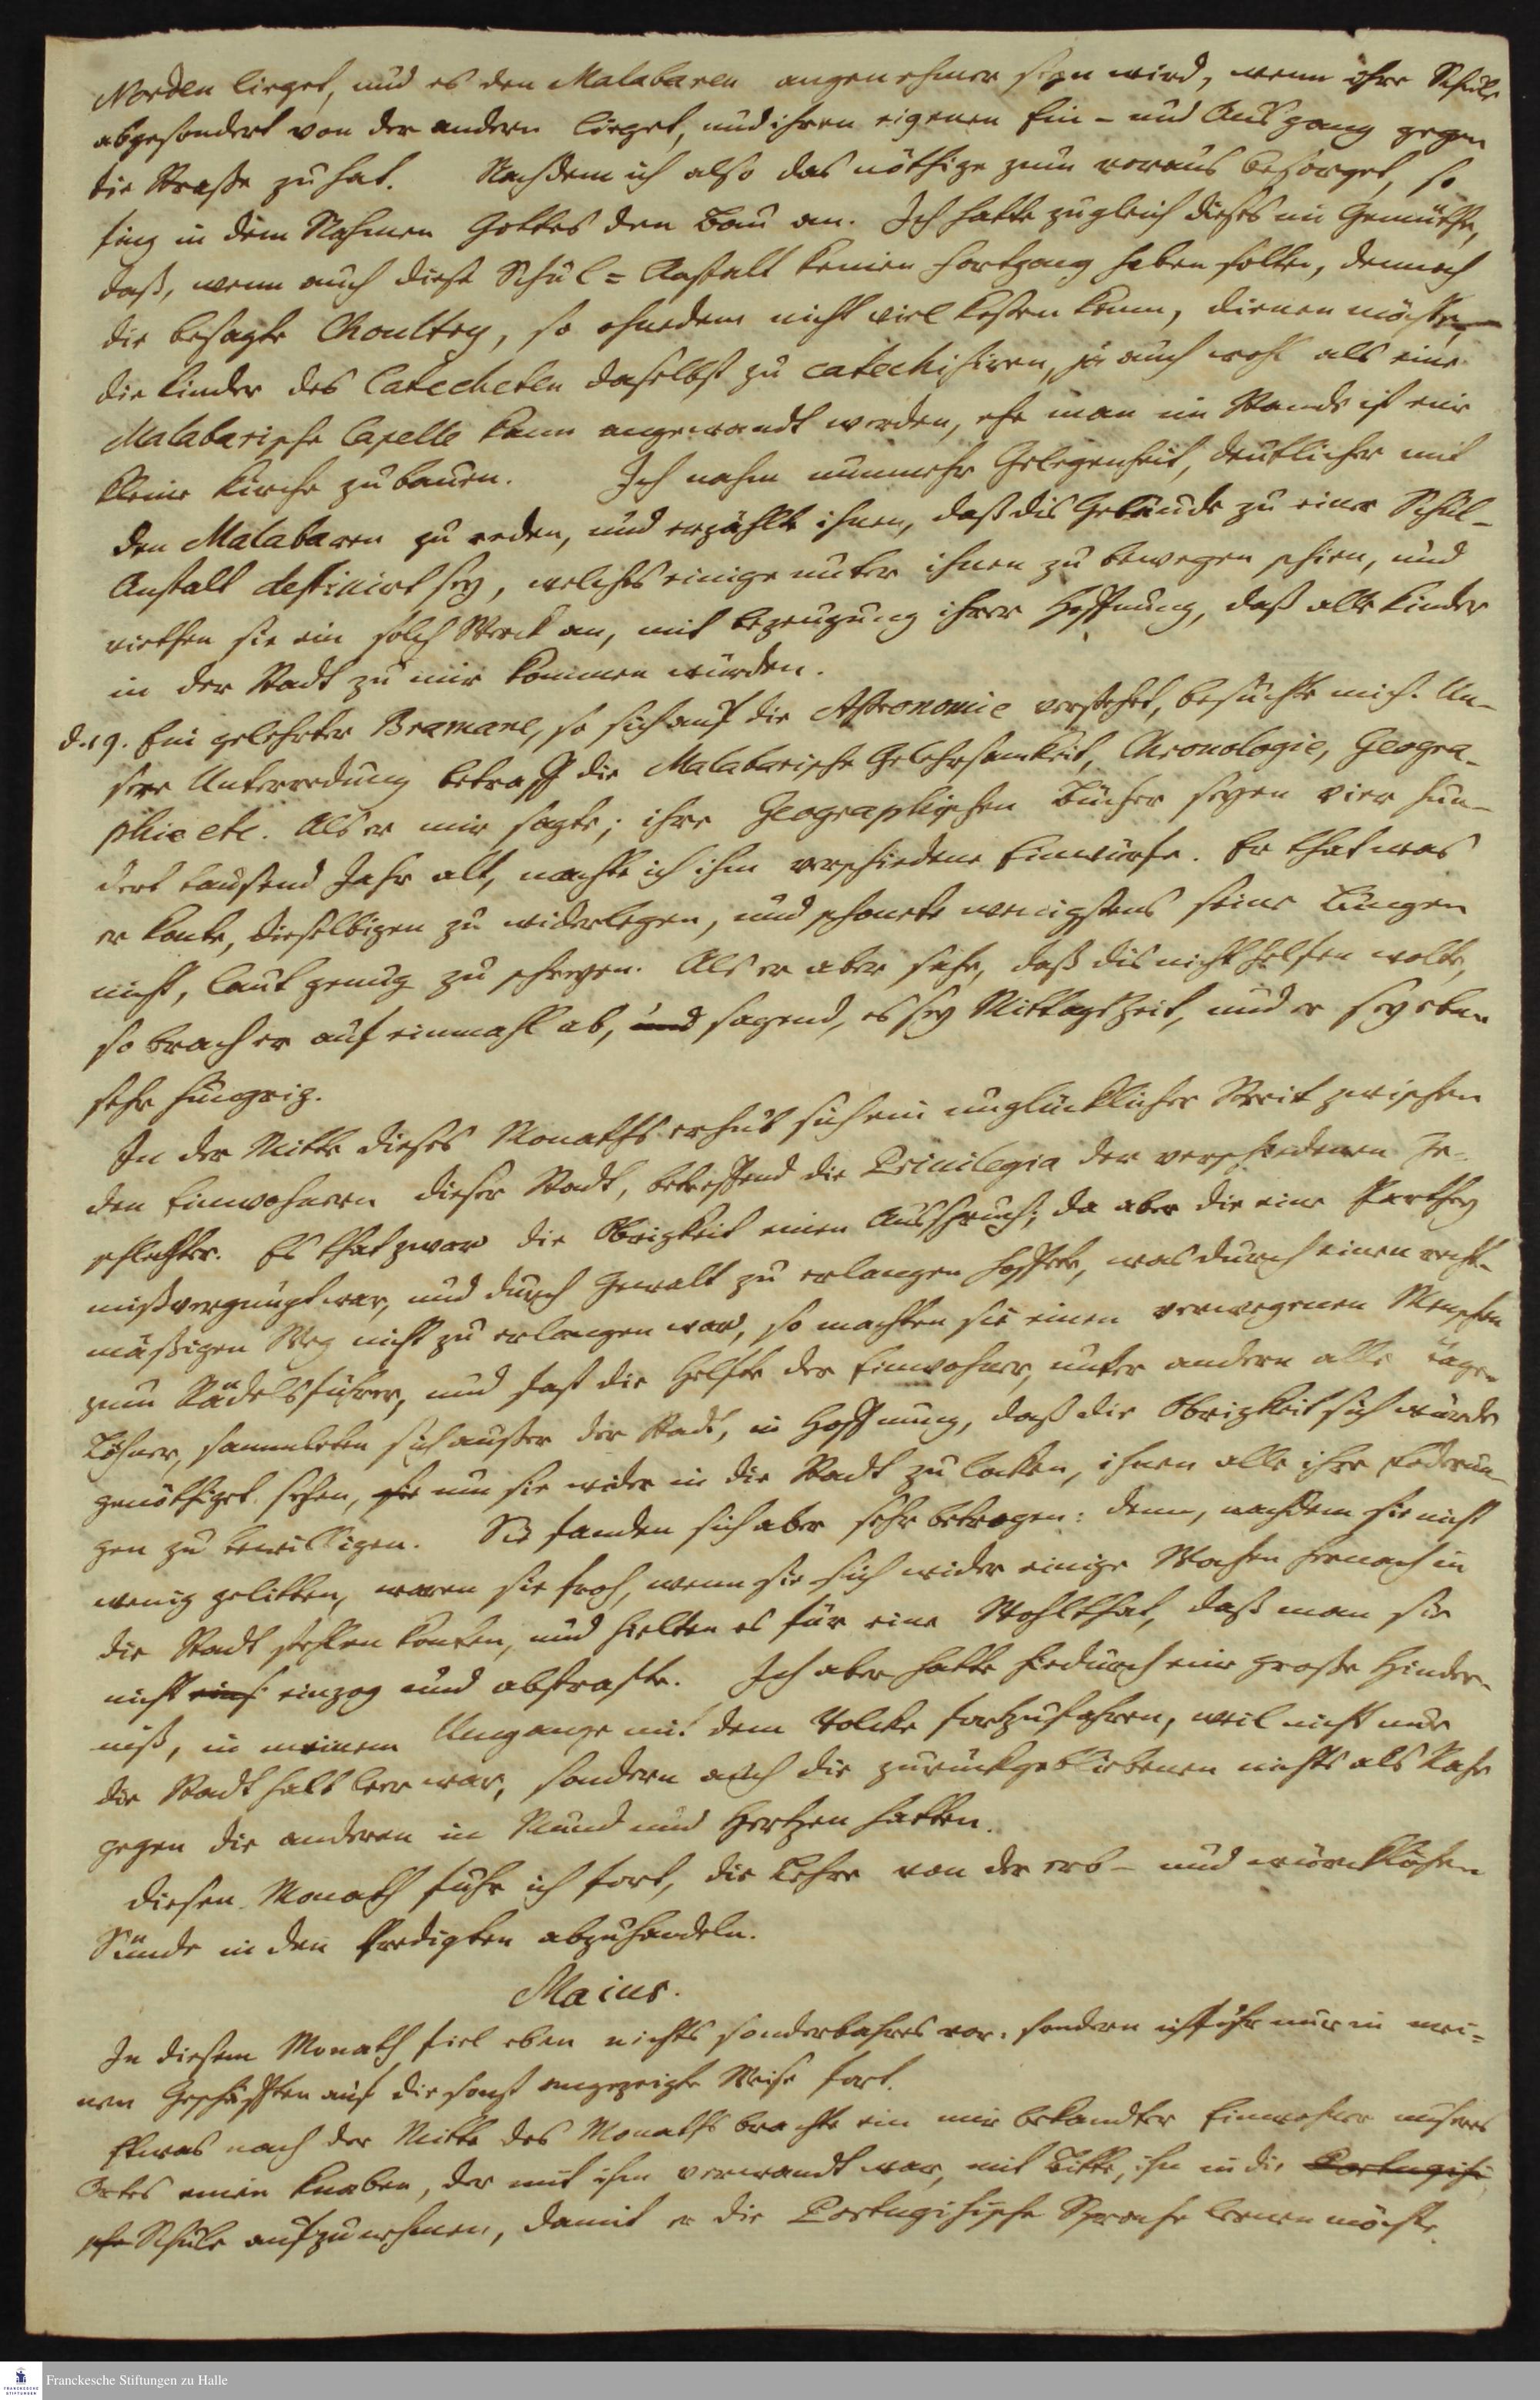 Norden lieget, und es den Malabaren angenehmer seyn wird, wenn ihre Schule
abgesondert von der andern lieget, und ihren eigenen Ein- und Ausgang gegen
die Straße zu hat. Nachdem ich also das nöthige zum voraus besorget, so
fing in dem Nahmen Gottes den Bau an. Ich hatte zugleich dieses im Gemüthe,
daß, wenn auch diese Schul=Anstalt keinen Fortgang haben solte, dennoch
die besagte Choultry, so ohnedem nicht viel kosten kann, dienen möchte,
die Kinder des Catecheten daselbst zu catechisiren, ja auch wohl als eine
Malabarische Capelle kann angewandt werden, ehe man im Stande ist eine
kleine Kirche zu bauen. Ich nahm nunmehr Gelegenheit, deutlicher mit
den Malabaren zu reden, und erzählte ihnen, daß dis Gebäude zu einer Schul-
Anstalt destinirt sey, welches einige unter ihnen zu bewegen schien, und
riethen sie ein solch Werck an, mit Bezeugung ihrer Hoffnung, daß alle Kinder
in der Stadt zu mir kommen würden.
d. 19. Ein gelehrter Bramane, so sich auf die Astronomie verstehet, besuchte mich. Un-
sere Unterredung betraff die Malabarische Gelehrsamkeit, Chronologie, Geogra-
phie etc. Als er mir sagte; ihre Geographischen Bücher seyen vier hun-
dert tausend Jahr alt, machte ich ihm verschiedene Einwürfe. Er that was
er konte, dieselbigen zu widerlegen, und schonete wenigstens seine Lungen
nicht, laut genug zu schreyen. Als er aber sahe, daß dis nicht helfen wolte,
so brach er auf einmahl ab, und sagend, es sey Mittagszeit, und er sey eben
sehr hungrig.
In der Mitte dieses Monaths erhub sich ein unglücklicher Streit zwischen
den Einwohnern dieser Stadt, betreffend die Privilegia der verschiedenen Ge-
schlechter. Es that zwar die Obrigkeit einen Ausspruch; da aber die eine Parthey
mißvergnügt war, und durch Gewalt zu erlangen hoffete, was durch einen recht-
mäßigen Weg nicht zu erlangen war, so machten sie einen verwegenen Menschen
zum Rädelsführer, und fast die Helfte der Einwohner, unter andern alle Tage-
Löhner, sammleten sich außer der Stadt, in Hoffnung, daß die Obrigkeit sich würde
genöthiget sehen, um sie wider in die Stadt zu locken, ihnen alle ihre Foderun-
gen zu bewilligen. Sie fanden sich aber sehr betrogen: denn, nachdem sie nicht
wenig gelitten, waren sie froh, wenn sie sich wider einige Wochen hernach in
die Stadt stehlen konten, und hielten es für eine Wohlthat, daß man sie
nicht einzog und abstrafte. Ich aber hatte hiedurch eine große Hinder-
niß, in meinem Umgange mit dem Volcke fortzufahren, weil nicht nur
die Stadt halb leer war, sondern auch die zurückgebliebenen nichts als Rache
gegen die anderen in Mund und Hertzen hatten.
Diesen Monath fuhr ich fort, die Lehre von der Erb- und würcklichen
Sünde in den Predigten abzuhandeln.
Maius.
In diesem Monath fiel eben nichts sonderbahres vor, sondern ich fuhr nur in mei-
nen Geschäfften auf die sonst angezeigte Weise fort.
Etwas nach der Mitte des Monaths brachte ein mir bekandter Einwohner unseres
Ortes einen Knaben, der mit ihm verwandt war, mit Bitte, ihn in die Portugisi
sche Schule aufzunehmen, damit er die Portugisische Sprache lernen möchte.
Franckesche Stiftungen zu Halle